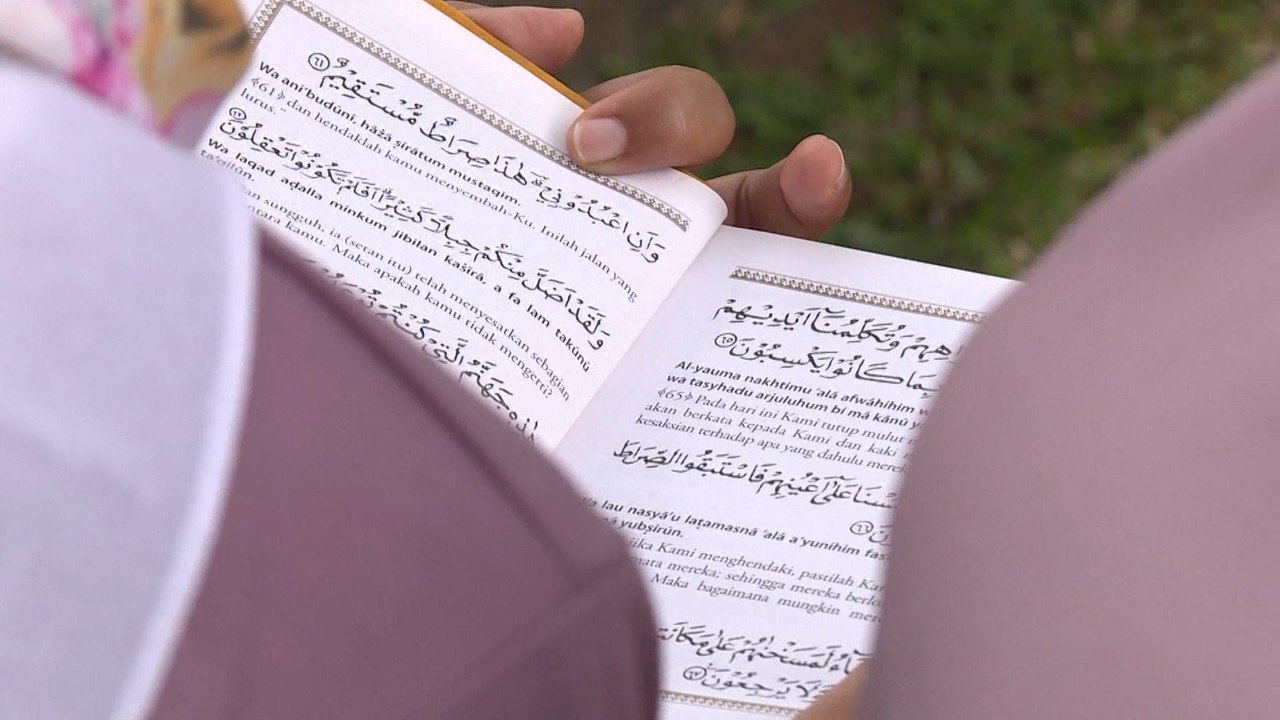 وَاَنِ اعْبُدُوْنِيْ ۗهٰذَا صِرَاطٌ مُّسْتَقِيْمٌ ٦١
Wa ani‘budūnī, hāżā ṣirātum mustaqīm.
﴾61﴿ dan hendaklah kamu menyembah-Ku. Inilah jalan yang
lurus.”
وَلَقَدْ اَضَلَّ مِنْكُمْ جِبِلًّا كَثِيْرًا ۗاَفَلَمْ تَكُوْنُوْا تَعْقِلُوْنَ ٦٢
Wa laqad aḍalla minkum jibilan kaṡīrā, a fa lam takūnū
sungguh, ia (setan itu) telah menyesatkan sebagian
antara kamu. Maka apakah kamu tidak mengerti?
جَهَنَّمُ الَّتِيْ كُنْتُمْ
وَتُكَلِّمُنَآ اَيْدِيْهِمْ
بِمَا كَانُوْا يَكْسِبُوْنَ ٦٥
Al-yauma nakhtimu ‘alā afwāhihim
wa tasyhadu arjuluhum bi mā kānū
﴾65﴿ Pada hari ini Kami tutup mulut
akan berkata kepada Kami dan kaki
kesaksian terhadap apa yang dahulu
عَلٰٓى اَعْيُنِهِمْ فَاسْتَبَقُوا الصِّرَاطَ
٦٦
lau nasyā’u laṭamasnā ‘alā a‘yunihim
yubṣirūn.
jika Kami menghendaki, pastilah
mata mereka; sehingga mereka
Maka bagaimana mungkin
لَمَسَخْنٰهُمْ عَلٰى
وَلَا يَرْجِعُوْنَ ٦٧